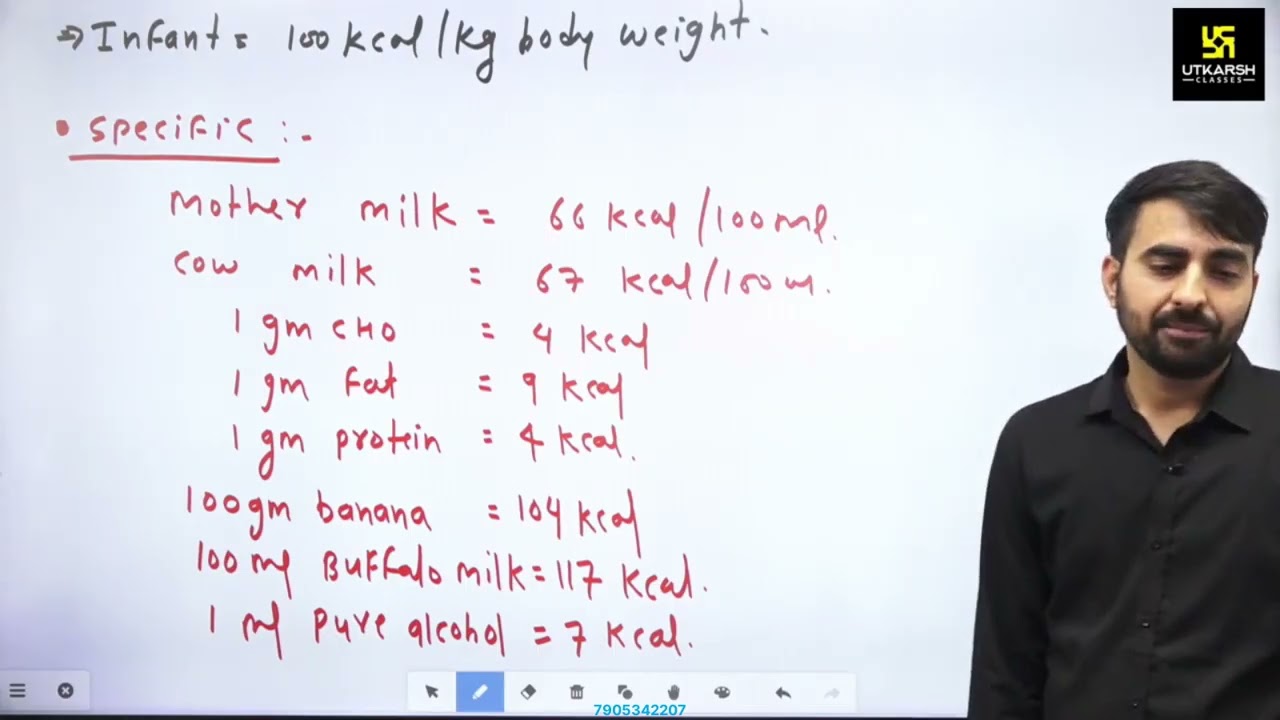 ⇒ Infant = 100 kcal/kg body weight.
UTKARSH
CLASSES
• specific :-
Mother milk = 66 kcal/100 ml.
cow milk = 67 kcal/100 ml.
1 gm CHO = 4 kcal
1 gm fat = 9 kcal
1 gm protein = 4 kcal.
100gm banana = 104 kcal
100 ml Buffalo milk = 117 kcal.
1 ml pure alcohol = 7 kcal.
7905342207